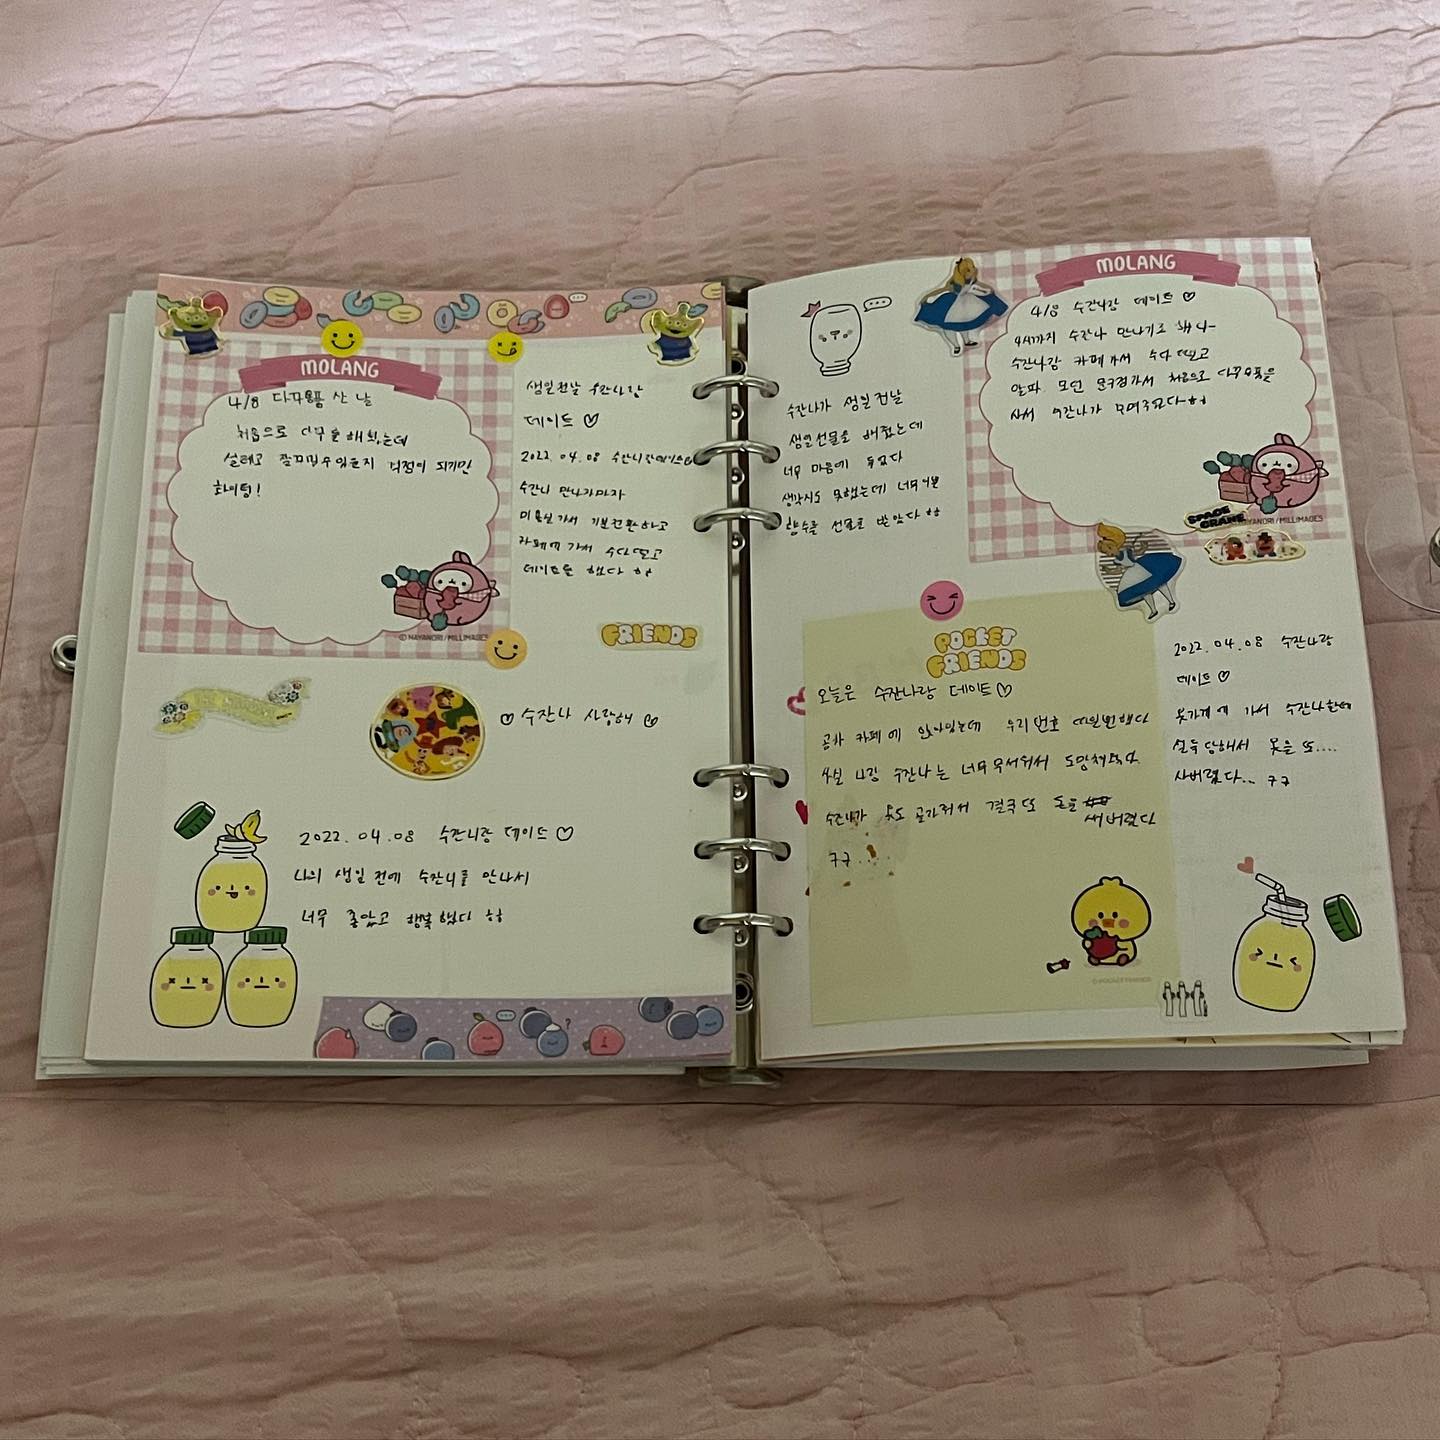 MOLANG
4/8 다꾸용품 산 날
처음으로 다꾸를 해 봤는데
설레고 잘꾸밀수있을지 걱정이 되지만
화이팅!
© HAYANORI/MILLIMAGES
생일전날 수잔나랑
데이트 ♡
2022.04.08 수잔나랑데이트♡
수잔나 만나자마자
미용실가서 기분전환하고
카페에 가서 수다떨고
데이트를 했다 ㅎㅎ
FRIENDS
♡ 수잔나 사랑해 ♡
2022.04.08 수잔나랑 데이트 ♡
나의 생일 전에 수잔나를 만나서
너무 좋았고 행복했다 ㅎㅎ
수잔나가 생일전날
생일선물을 해줬는데
너무 마음에 들었다
생각지도 못했는데 너무
향수를 선물로 받았다 ㅎㅎ
MOLANG
4/8 수잔나랑 데이트 ♡
4시까지 수잔나 만나기로 해서~
수잔나랑 카페가서 수다떨고
알파, 모던 문구점가서 처음으로 다꾸용품을
사서 수잔나가
HAYANORI/MILLIMAGES
SPACE CRANE
POCKET
FRIENDS
오늘은 수잔나랑 데이트♡
공차 카페에 앉아있는데 우리 번호
사실 나랑 수잔나는 너무 무서워서 도망쳤다
수잔나가 결국 또 돈을
써버렸다
ㅋㅋ...
© POCKET FRIENDS
2022.04.08 수잔나랑
데이트 ♡
옷가게에 가서 수잔나한테
설득당해서 옷을 또....
사버렸다.. ㅋㅋ